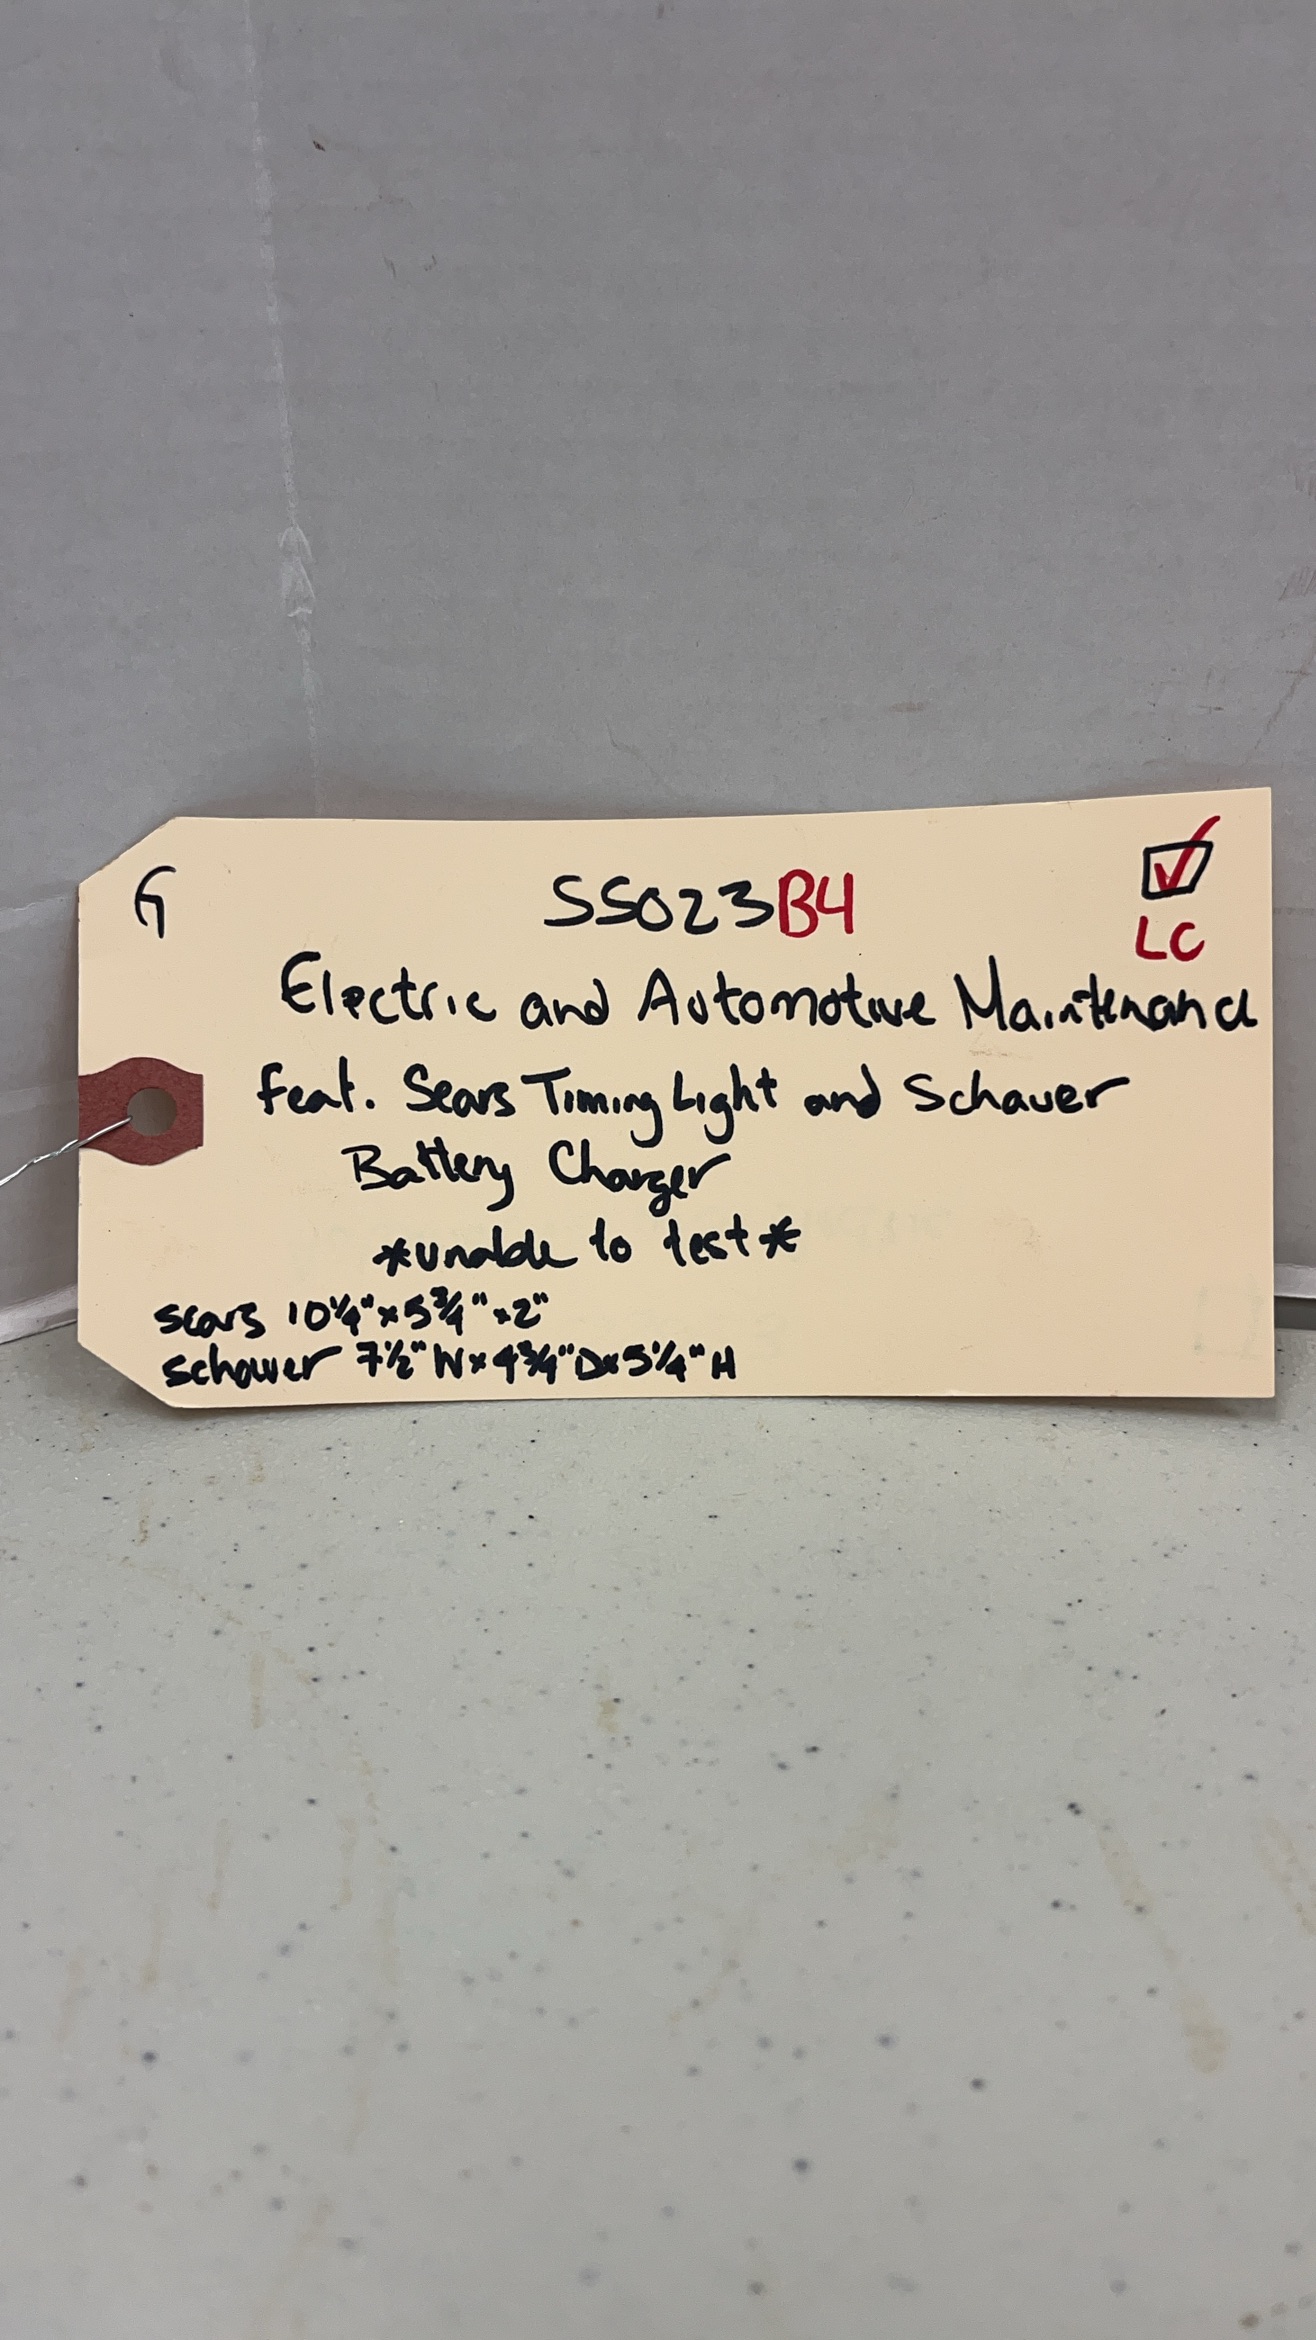 G
SS023B4
☑
LC
Electric and Automotive Maintenance
feat. Sears Timing Light and Schauer
Battery Charger
*unable to test*
Sears 10¼"x5¾"x2"
Schauer 7½"Wx4¾"Dx5¼"H